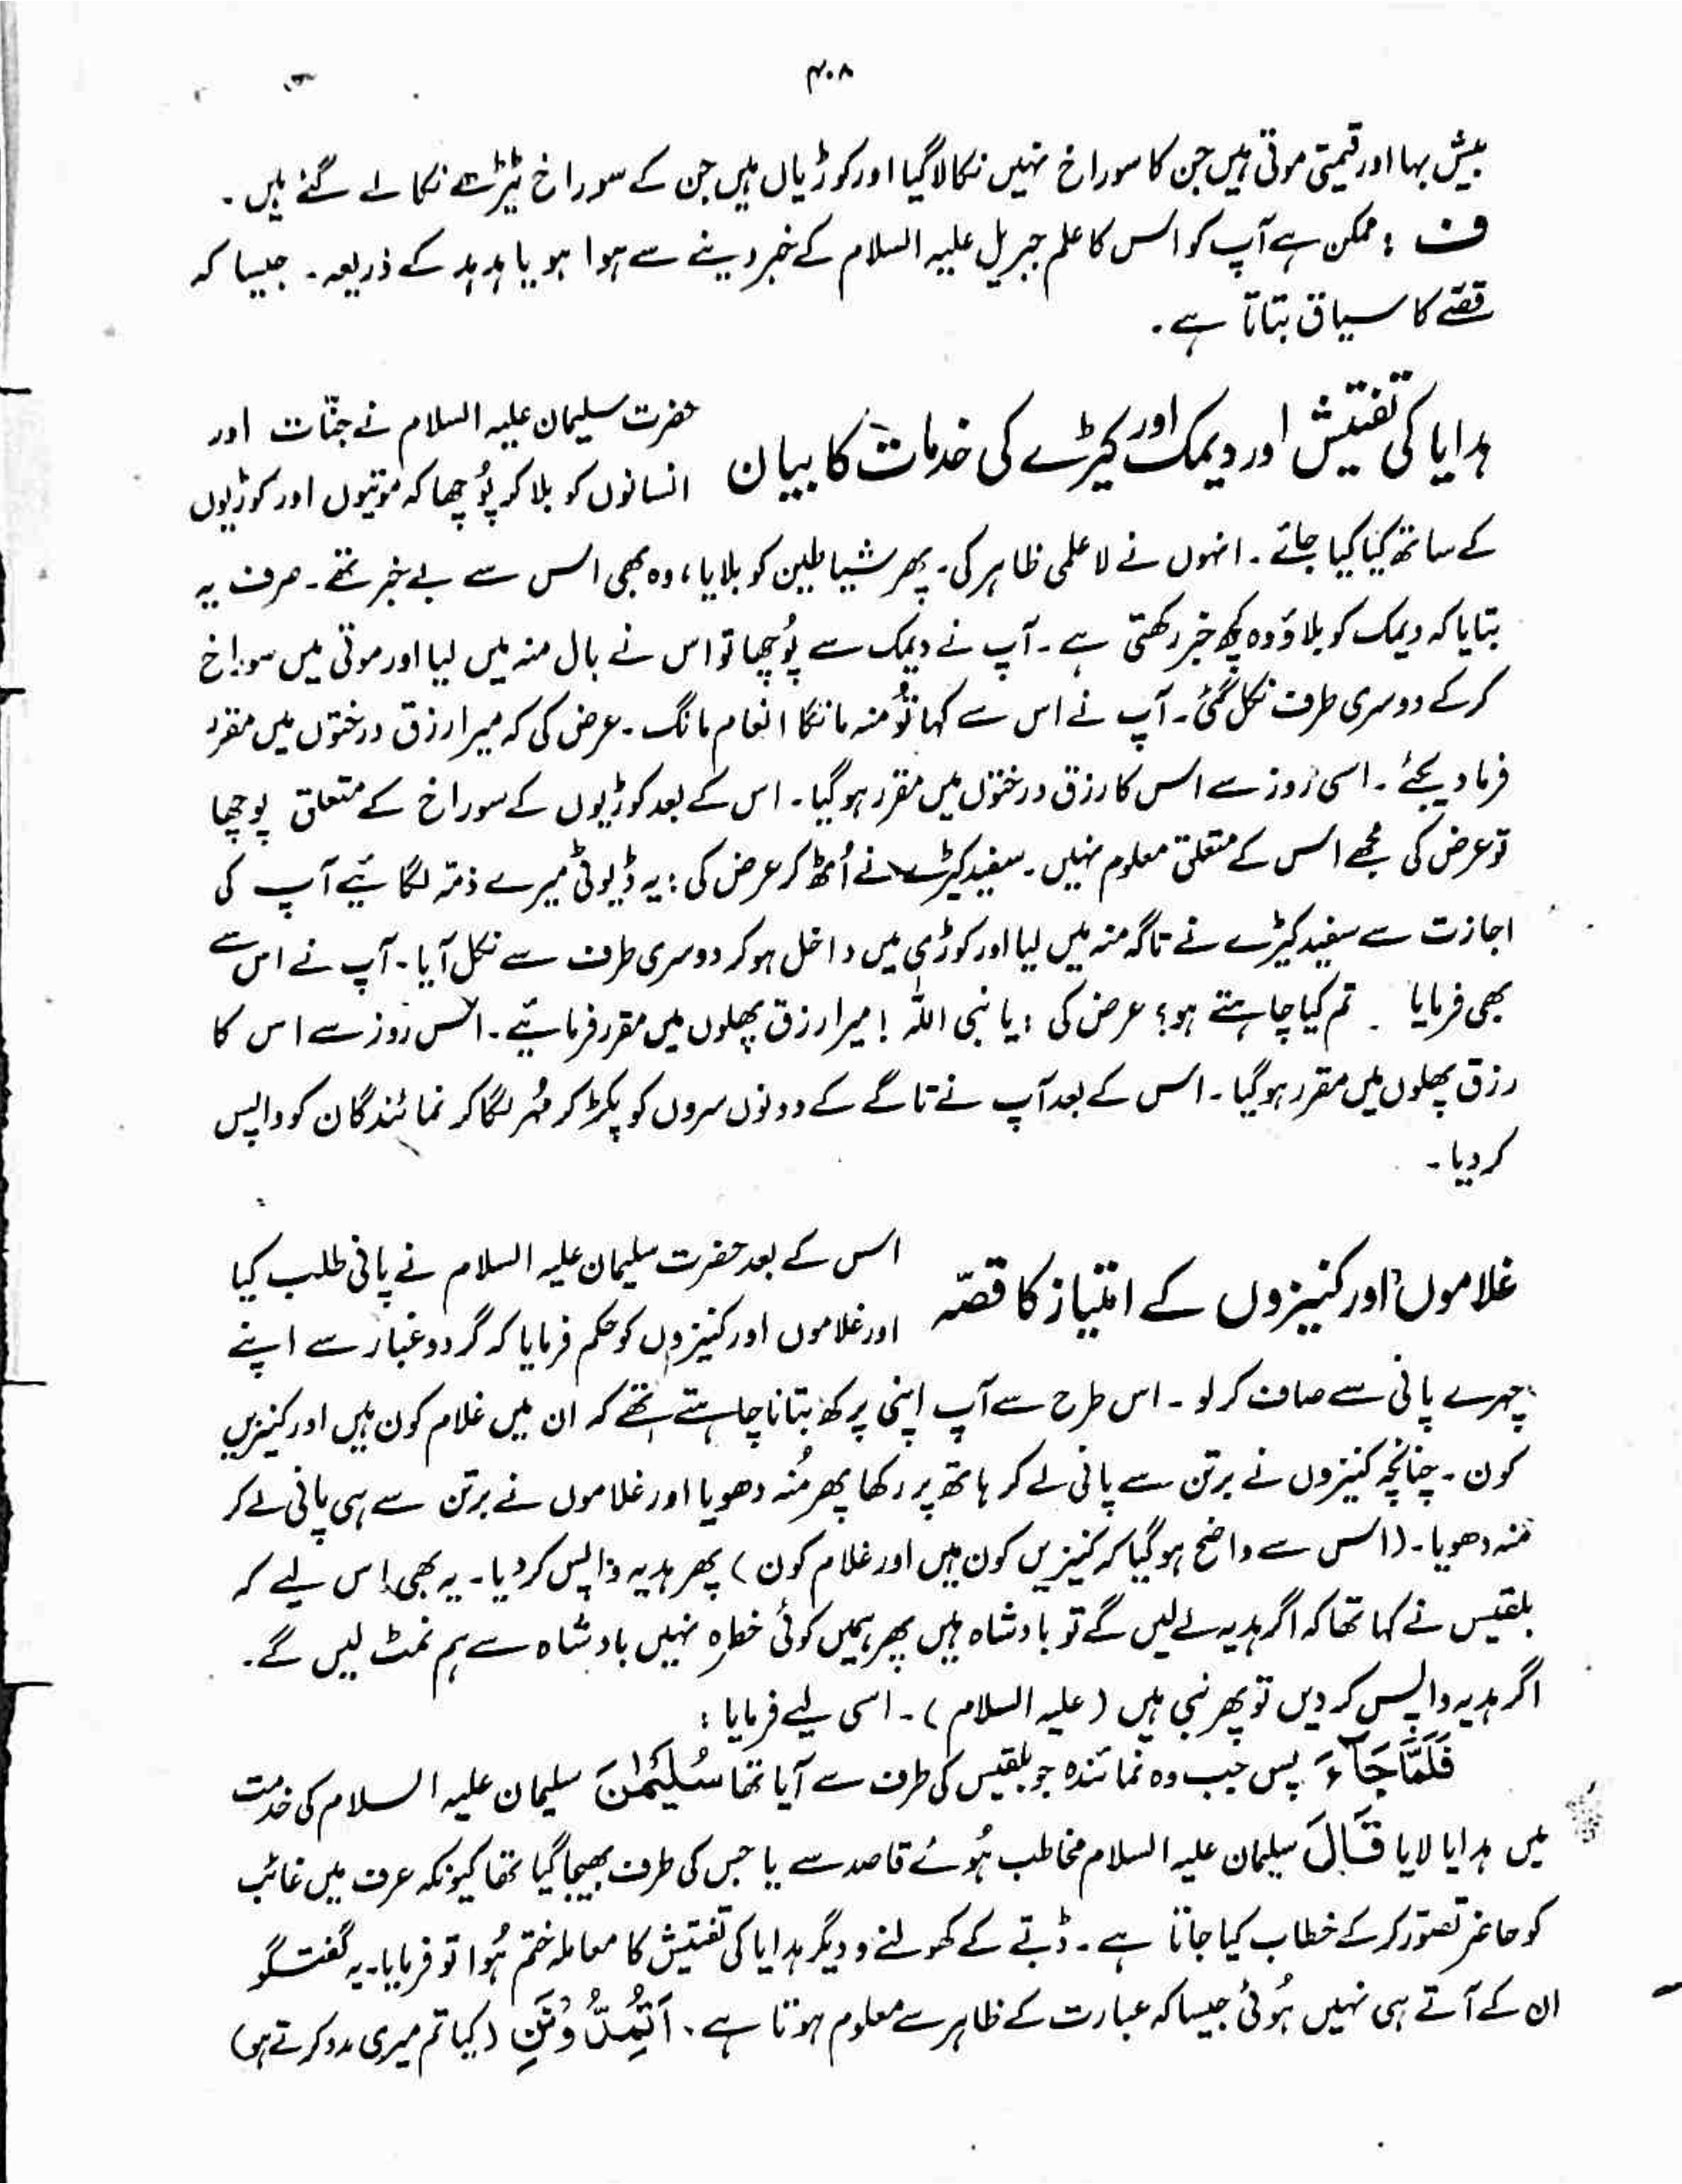 ۴۰۸
بیش بہا اور قیمتی موتی ہیں جن کا سوراخ نہیں نکالا گیا اور کوڑیاں ہیں جن کے سوراخ ٹیڑھے نکالے گئے ہیں۔
ف : ممکن ہے آپ کو اس کا علم جبریل علیہ السلام کے خبر دینے سے ہوا ہو یا ہدہد کے ذریعہ۔ جیسا کہ
قصّے کا سیاق بتاتا ہے۔
ہدایا کی تفتیش اور دیمک اور کیڑے کی خدمات کا بیان
حضرت سلیمان علیہ السلام نے جنّات اور
انسانوں کو بلا کر پُوچھا کہ موتیوں اور کوڑیوں
کے ساتھ کیا کیا جائے۔ انہوں نے لاعلمی ظاہر کی۔ پھر شیاطین کو بلایا، وہ بھی اس سے بے خبر تھے۔ صرف یہ
بتایا کہ دیمک کو بلاؤ وہ کچھ خبر رکھتی ہے۔ آپ نے دیمک سے پُوچھا تو اس نے بال منہ میں لیا اور موتی میں سوراخ
کرکے دوسری طرف نکل گئی۔ آپ نے اس سے کہا تُو منہ مانگا انعام مانگ۔ عرض کی کہ میرا رزق درختوں میں مقرر
فرما دیجئے۔ اسی روز سے اس کا رزق درختوں میں مقرر ہوگیا۔ اس کے بعد کوڑیوں کے سوراخ کے متعلق پوچھا
تو عرض کی مجھے اس کے متعلق معلوم نہیں۔ سفید کیڑے نے اُٹھ کر عرض کی : یہ ڈیوٹی میرے ذمّہ لگائیے آپ کی
اجازت سے سفید کیڑے نے تاگہ منہ میں لیا اور کوڑی میں داخل ہو کر دوسری طرف سے نکل آیا۔ آپ نے اس سے
بھی فرمایا ۔ تم کیا چاہتے ہو؟ عرض کی : یا نبی اللہ ! میرا رزق پھلوں میں مقرر فرمائیے۔ اس روز سے اس کا
رزق پھلوں میں مقرر ہوگیا۔ اس کے بعد آپ نے تاگے کے دونوں سروں کو پکڑ کر مُہر لگا کر نمائندگان کو واپس
کر دیا۔
غلاموں اور کنیزوں کے امتیاز کا قصّہ
اس کے بعد حضرت سلیمان علیہ السلام نے پانی طلب کیا
اور غلاموں اور کنیزوں کو حکم فرمایا کہ گرد و غبار سے اپنے
چہرے پانی سے صاف کر لو۔ اس طرح سے آپ اپنی پرکھ بتانا چاہتے تھے کہ ان میں غلام کون ہیں اور کنیزیں
کون۔ چنانچہ کنیزوں نے برتن سے پانی لے کر ہاتھ پر رکھا پھر مُنہ دھویا اور غلاموں نے برتن سے ہی پانی لے کر
منہ دھویا۔ (اس سے واضح ہوگیا کہ کنیزیں کون ہیں اور غلام کون) پھر ہدیہ واپس کر دیا۔ یہ بھی اس لیے کہ
بلقیس نے کہا تھا کہ اگر ہدیہ لے لیں گے تو بادشاہ ہیں پھر ہمیں کوئی خطرہ نہیں بادشاہ سے ہم نمٹ لیں گے۔
اگر ہدیہ واپس کر دیں تو پھر نبی ہیں (علیہ السلام)۔ اسی لیے فرمایا :
فَلَمَّا جَآءَ پس جب وہ نمائندہ جو بلقیس کی طرف سے آیا تھا سُلَیْمٰنَ سلیمان علیہ السلام کی خدمت
میں ہدایا لایا قَالَ سلیمان علیہ السلام مخاطب ہُوئے قاصد سے یا جس کی طرف بھیجا گیا تھا کیونکہ عرف میں غائب
کو حاضر تصوّر کر کے خطاب کیا جاتا ہے۔ ڈبّے کے کھولنے و دیگر ہدایا کی تفتیش کا معاملہ ختم ہُوا تو فرمایا۔ یہ گفتگو
ان کے آتے ہی نہیں ہُوئی جیسا کہ عبارت کے ظاہر سے معلوم ہوتا ہے۔ اَتُمِدُّوْنَنِ (کیا تم میری مدد کرتے ہو)